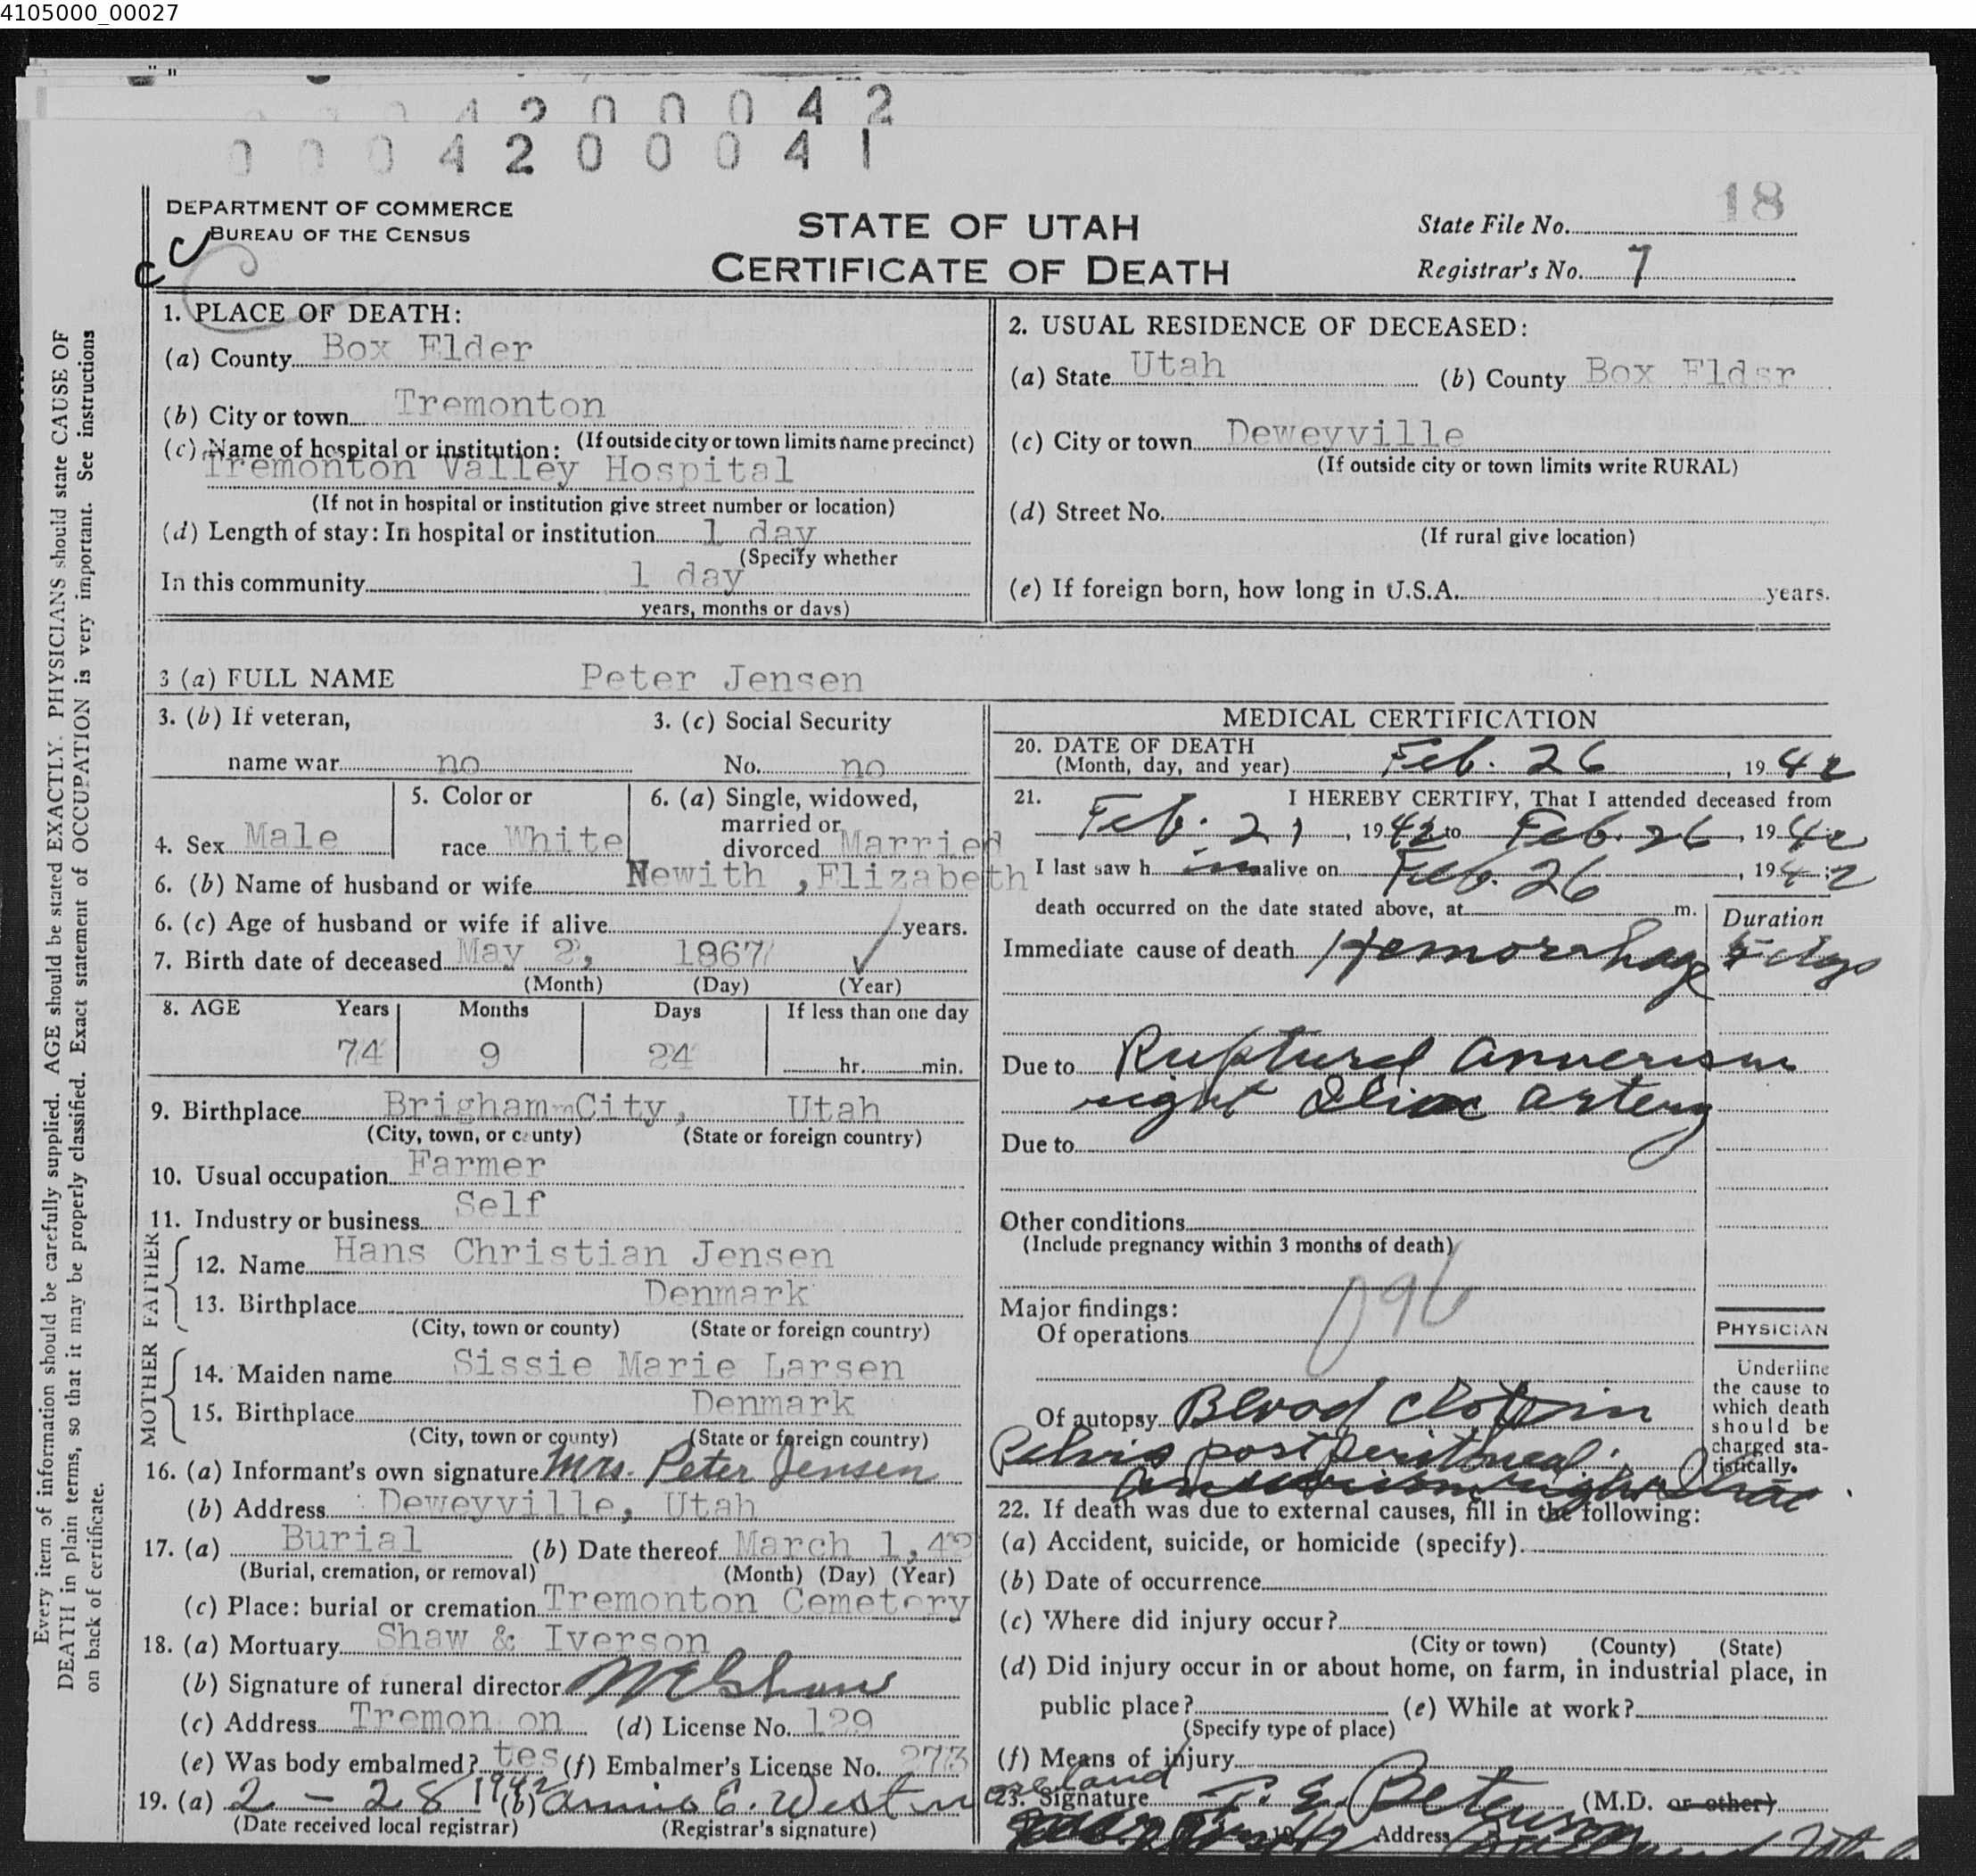 4105000_00027
4 2 0 0 0 4 2
0 0 0 4 2 0 0 0 4 1
18
DEPARTMENT OF COMMERCE
BUREAU OF THE CENSUS
STATE OF UTAH
CERTIFICATE OF DEATH
State File No.
Registrar's No. 7
Every item of information should be carefully supplied. AGE should be stated EXACTLY. PHYSICIANS should state CAUSE OF
DEATH in plain terms, so that it may be properly classified. Exact statement of OCCUPATION is very important. See instructions
on back of certificate.
1. PLACE OF DEATH:
(a) County Box Elder
(b) City or town Tremonton
(c) Name of hospital or institution: (If outside city or town limits name precinct)
Tremonton Valley Hospital
(If not in hospital or institution give street number or location)
(d) Length of stay: In hospital or institution 1 day
(Specify whether
In this community 1 day
years, months or days)
2. USUAL RESIDENCE OF DECEASED:
(a) State Utah (b) County Box Eldsr
(c) City or town Deweyville
(If outside city or town limits write RURAL)
(d) Street No.
(If rural give location)
(e) If foreign born, how long in U.S.A. years.
3 (a) FULL NAME Peter Jensen
3. (b) If veteran, 3. (c) Social Security
name war no No. no
4. Sex Male 5. Color or race White 6. (a) Single, widowed, married or divorced Married
6. (b) Name of husband or wife Newith , Elizabeth
6. (c) Age of husband or wife if alive years.
7. Birth date of deceased May 2, 1867
(Month) (Day) (Year)
8. AGE Years Months Days If less than one day
74 9 24 hr. min.
9. Birthplace Brigham City, Utah
(City, town, or county) (State or foreign country)
10. Usual occupation Farmer
11. Industry or business Self
FATHER
12. Name Hans Christian Jensen
13. Birthplace Denmark
(City, town or county) (State or foreign country)
MOTHER
14. Maiden name Sissie Marie Larsen
15. Birthplace Denmark
(City, town or county) (State or foreign country)
16. (a) Informant's own signature Mrs. Peter Jensen
(b) Address Deweyville, Utah
17. (a) Burial (b) Date thereof March 1, 42
(Burial, cremation, or removal) (Month) (Day) (Year)
(c) Place: burial or cremation Tremonton Cemetery
18. (a) Mortuary Shaw & Iverson
(b) Signature of funeral director
(c) Address Tremon on (d) License No. 129
(e) Was body embalmed? tes (f) Embalmer's License No. 273
19. (a) 2 - 28 1942 (b)
(Date received local registrar) (Registrar's signature)
MEDICAL CERTIFICATION
20. DATE OF DEATH
(Month, day, and year) Feb. 26, 1942
21. I HEREBY CERTIFY, That I attended deceased from
Feb. 21, 1942 to Feb. 26, 1942
I last saw h im alive on Feb. 26, 1942
death occurred on the date stated above, at m. Duration
Immediate cause of death Hemorrhage 5 dys
Due to Ruptured anuerism
right Iliac artery
Due to
Other conditions
(Include pregnancy within 3 months of death)
096
Major findings:
Of operations
Of autopsy Blood clot in
Pelvis post peritoneal
right Iliac
PHYSICIAN
Underline
the cause to
which death
should be
charged sta-
tistically.
22. If death was due to external causes, fill in the following:
(a) Accident, suicide, or homicide (specify).
(b) Date of occurrence
(c) Where did injury occur?
(City or town) (County) (State)
(d) Did injury occur in or about home, on farm, in industrial place, in
public place? (e) While at work?
(Specify type of place)
(f) Means of injury
23. Signature (M.D. or other)
Address